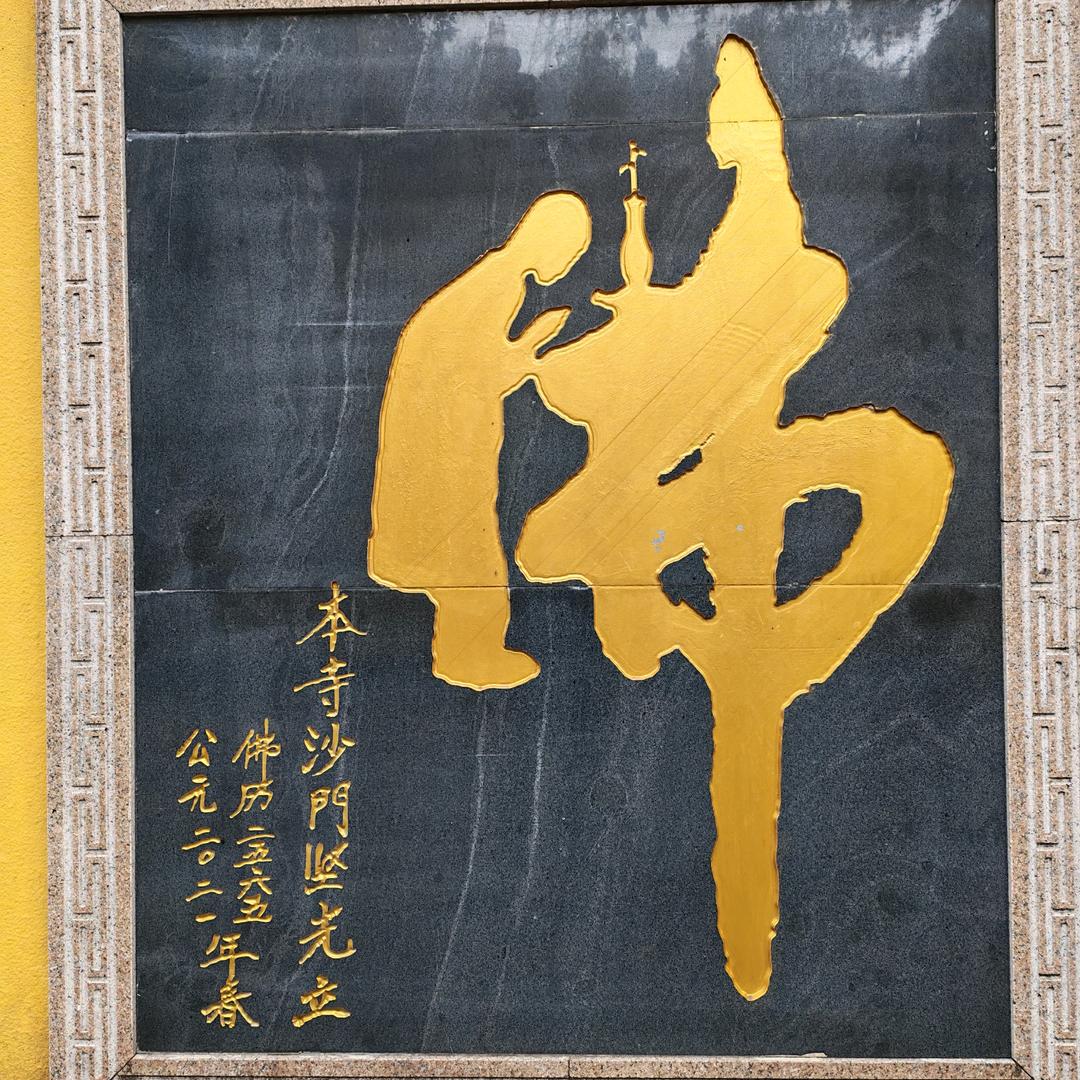 佛
本寺沙門坚光立
佛历二五六五
公元二〇二一年春